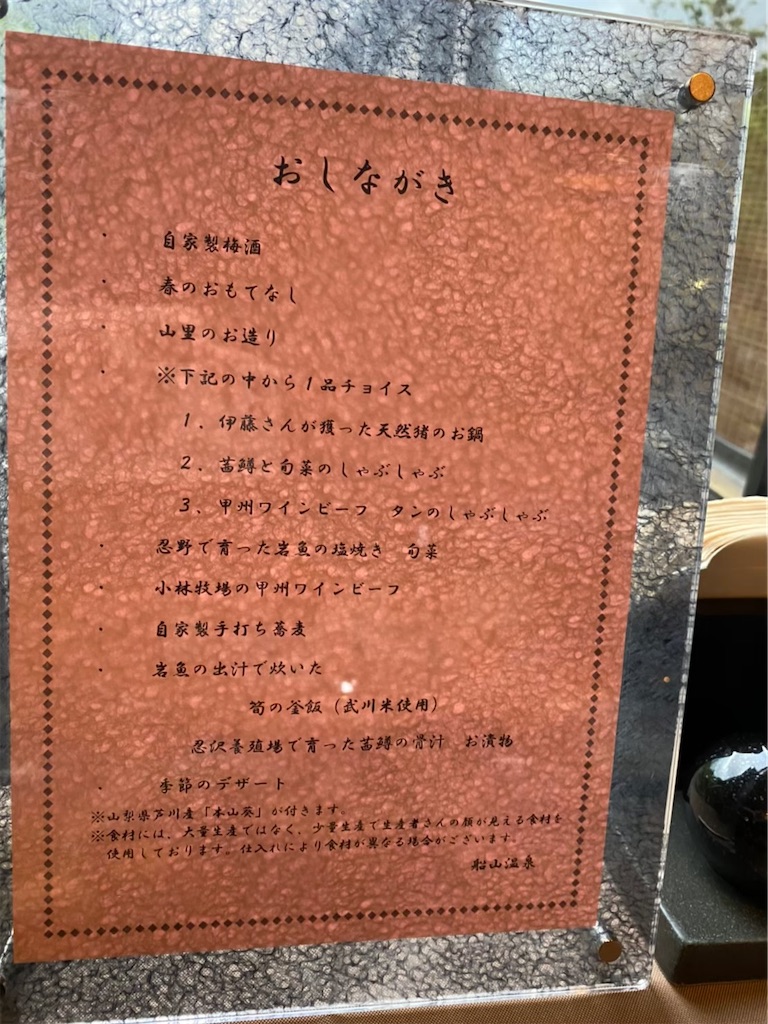 おしながき
・ 自家製梅酒
・ 春のおもてなし
・ 山里のお造り
・ ※下記の中から1品チョイス
1. 伊藤さんが獲った天然猪のお鍋
2. 茜鱒と旬菜のしゃぶしゃぶ
3. 甲州ワインビーフ タンのしゃぶしゃぶ
・ 忍野で育った岩魚の塩焼き 旬菜
・ 小林牧場の甲州ワインビーフ
・ 自家製手打ち蕎麦
・ 岩魚の出汁で炊いた
筍の釜飯(武川米使用)
忍沢養殖場で育った茜鱒の骨汁 お漬物
・ 季節のデザート
※山梨県芦川産「本山葵」が付きます。
※食材には、大量生産ではなく、少量生産で生産者さんの顔が見える食材を
使用しております。仕入れにより食材が異なる場合がございます。
船山温泉